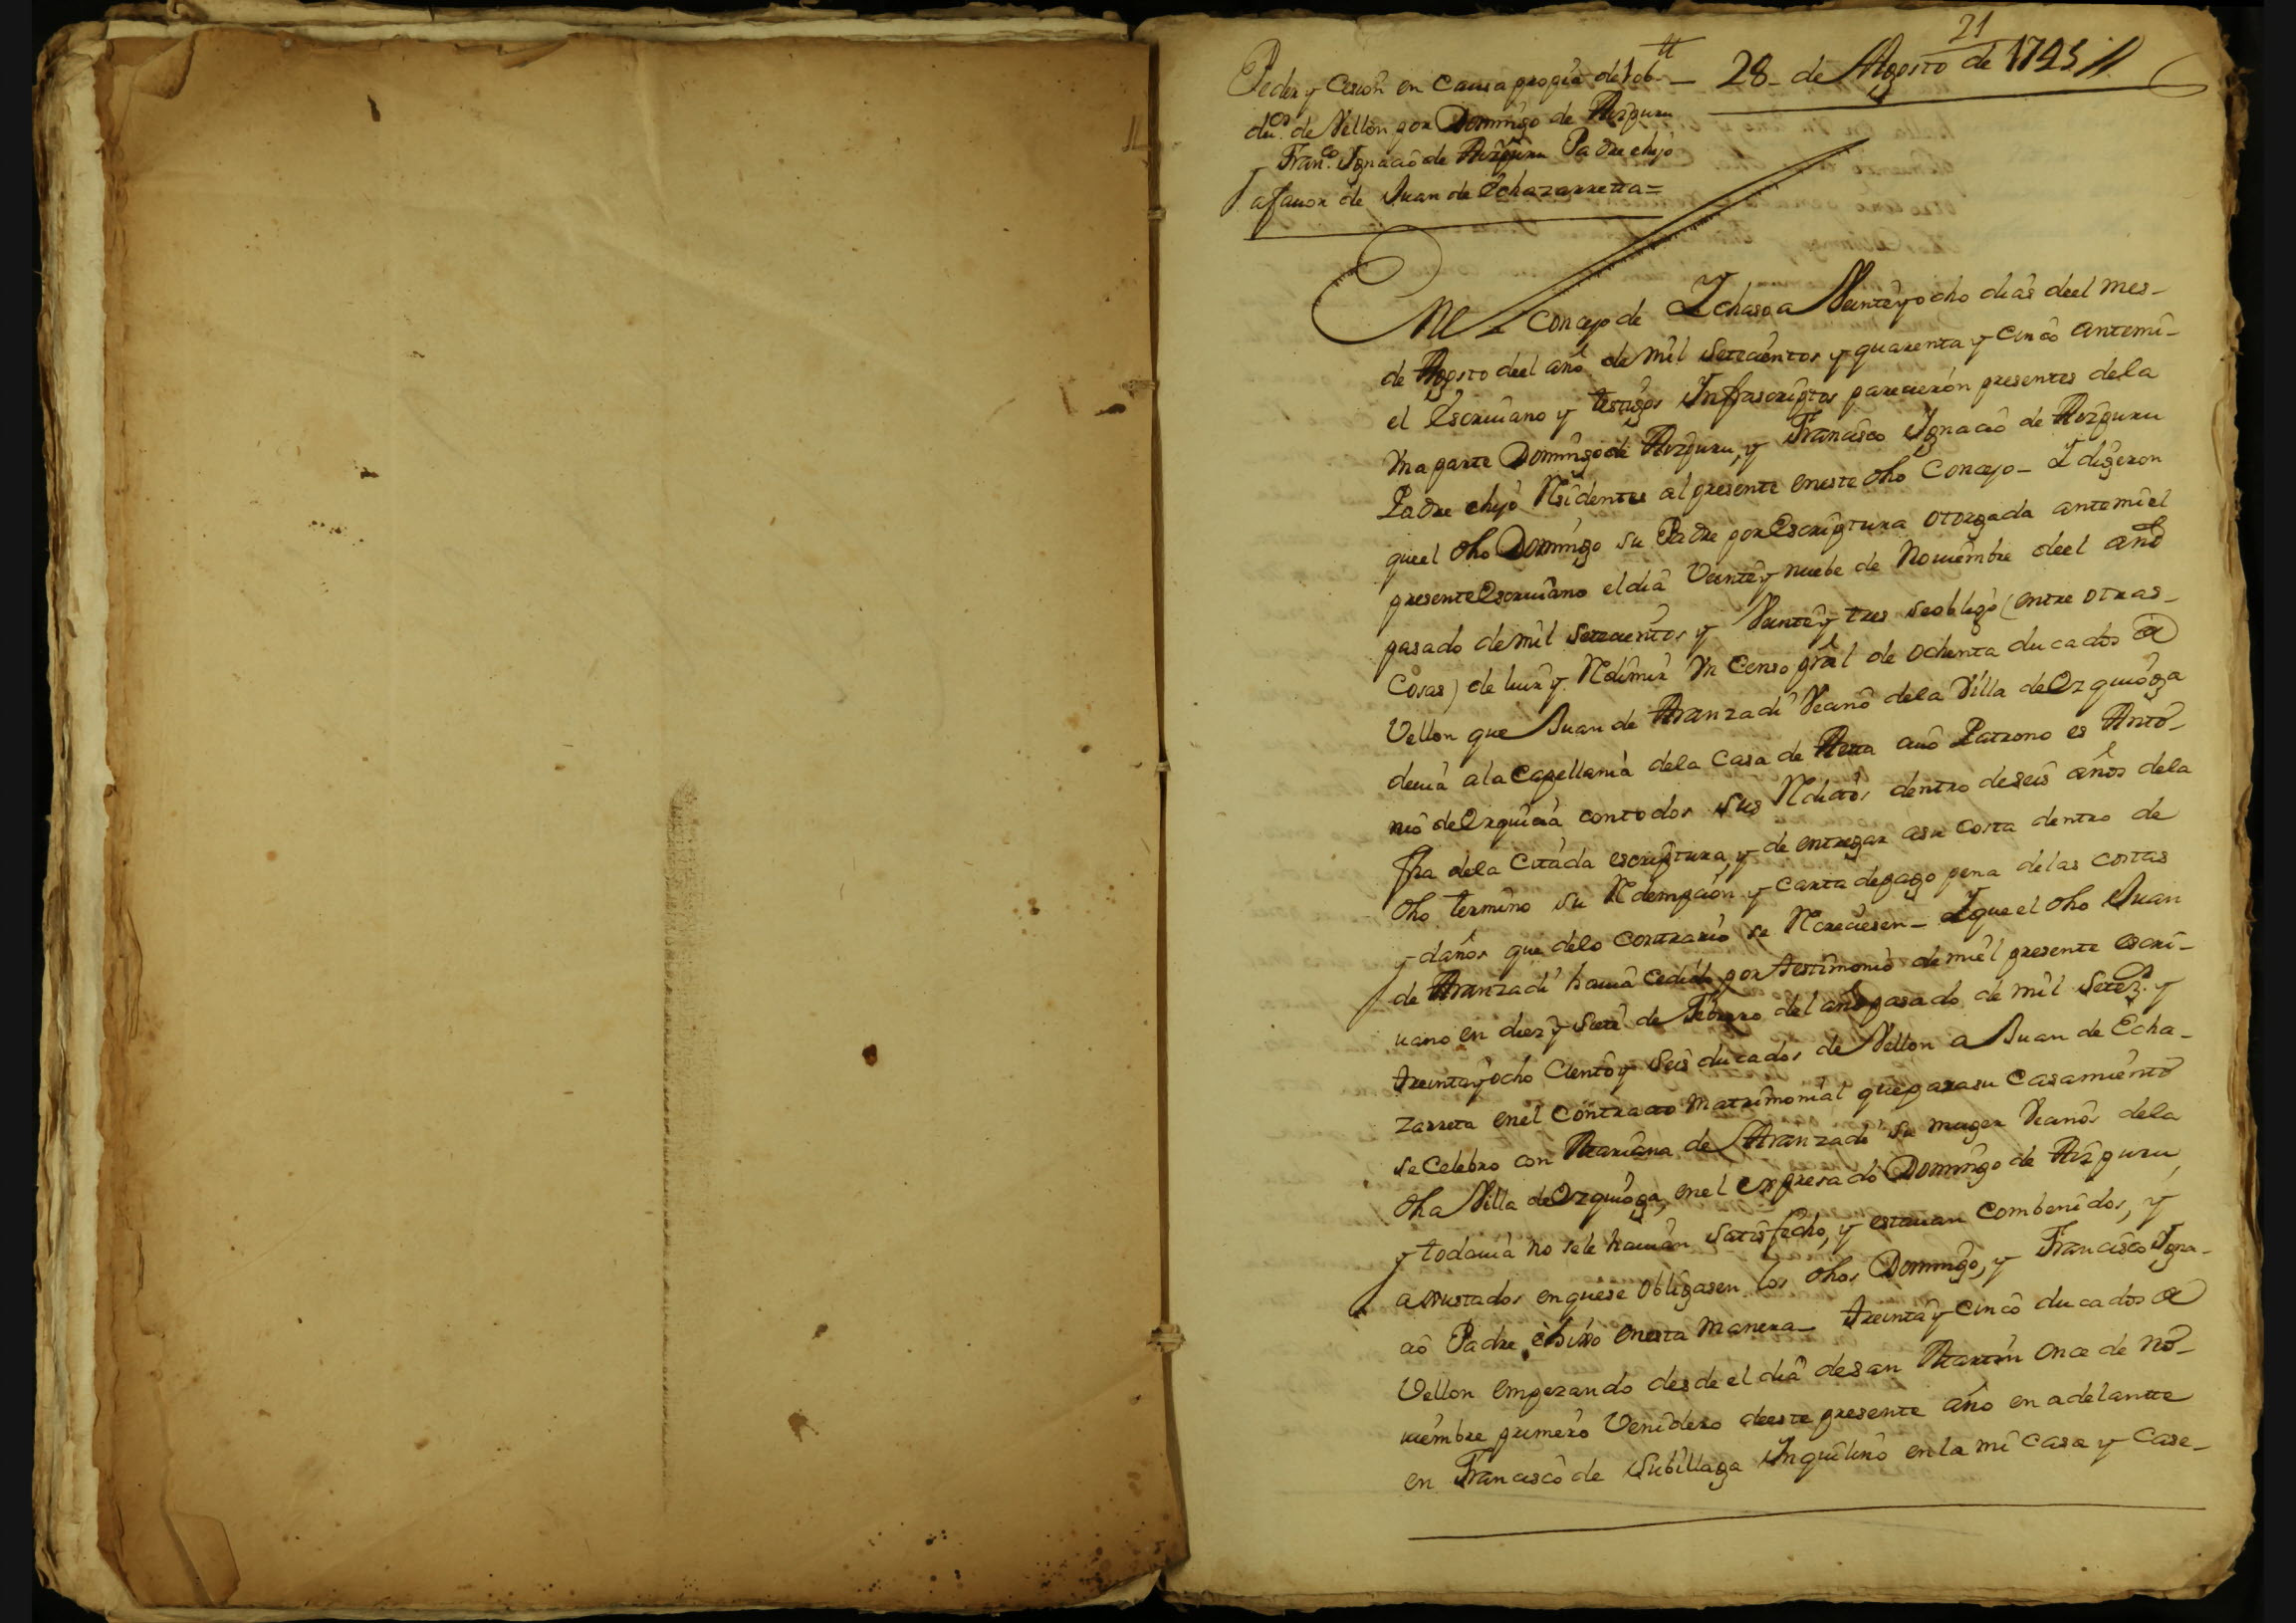 21
28 de Agosto de 1745
Poder y Cesion en Causa propia de 106
du.os de Vellon por Domingo de Aizpuru
Fran.co Ygnacio de Aizpuru Padre ehijo
afauor de Juan de Echazarretta=
En el Concejo de Ychaso a Veinte y ocho dias deel mes
de Agosto deel año de mil Setecientos y quarenta y cinco antemi
el Escriuano y testigos Infrascriptos parecieron presentes dela
Vna parte Domingo de Aizpuru, y Francisco Ygnacio de Aizpuru
Padre ehijo Residentes al presente eneste dho Concejo- Y digeron
queel dho Domingo su Padre por Escriptura otorgada antemi el
presente Escriuano el dia Veinte y nuebe de Nouiembre deel año
pasado de mil Setecientos y Veinte y tres se obligo (entre otras
Cosas) de luir y Redimir Vn Censo gral de ochenta ducados de
Vellon que Juan de Aranzadi Vecino dela Villa de Ezquioga
deuia ala Capellania dela Casa de cuio Patrono es Anto-
nio de Orquicia con todos sus Reditos dentro de seis años dela
fha dela Citada escriptura, y de entregar asu costa dentro de
dho termino su Redempcion y carta depago pena delas costas
y daños que delo contrario se Recreciesen- Y que el dho Juan
de Aranzadi hauia Cedido por testimonio de miel presente escri-
uano en diez y Siete de Febrero del año pasado de mil Setez.s y
treinta y ocho Ciento y Seis ducados de Vellon a Juan de Echa-
zarreta enel Contracto Matrimonial que para su Casamiento
se Celebro con Mariana de Aranzadi su muger Vecinos dela
dha Villa de Ezquioga, enel expresado Domingo de Aizpuru,
y todauia no sele hauian Satisfecho, y estauan combenidos, y
aJustados enquese obligasen los dhos Domingo, y Francisco Ygna-
cio Padre ehijo enesta manera- treinta y cinco ducados de
Vellon empezando desde el dia desan Martin once de No-
uiembre primero Venidero deeste presente año en adelantte
en Francisco de Subillaga Inquilino en la mi casa y Case-